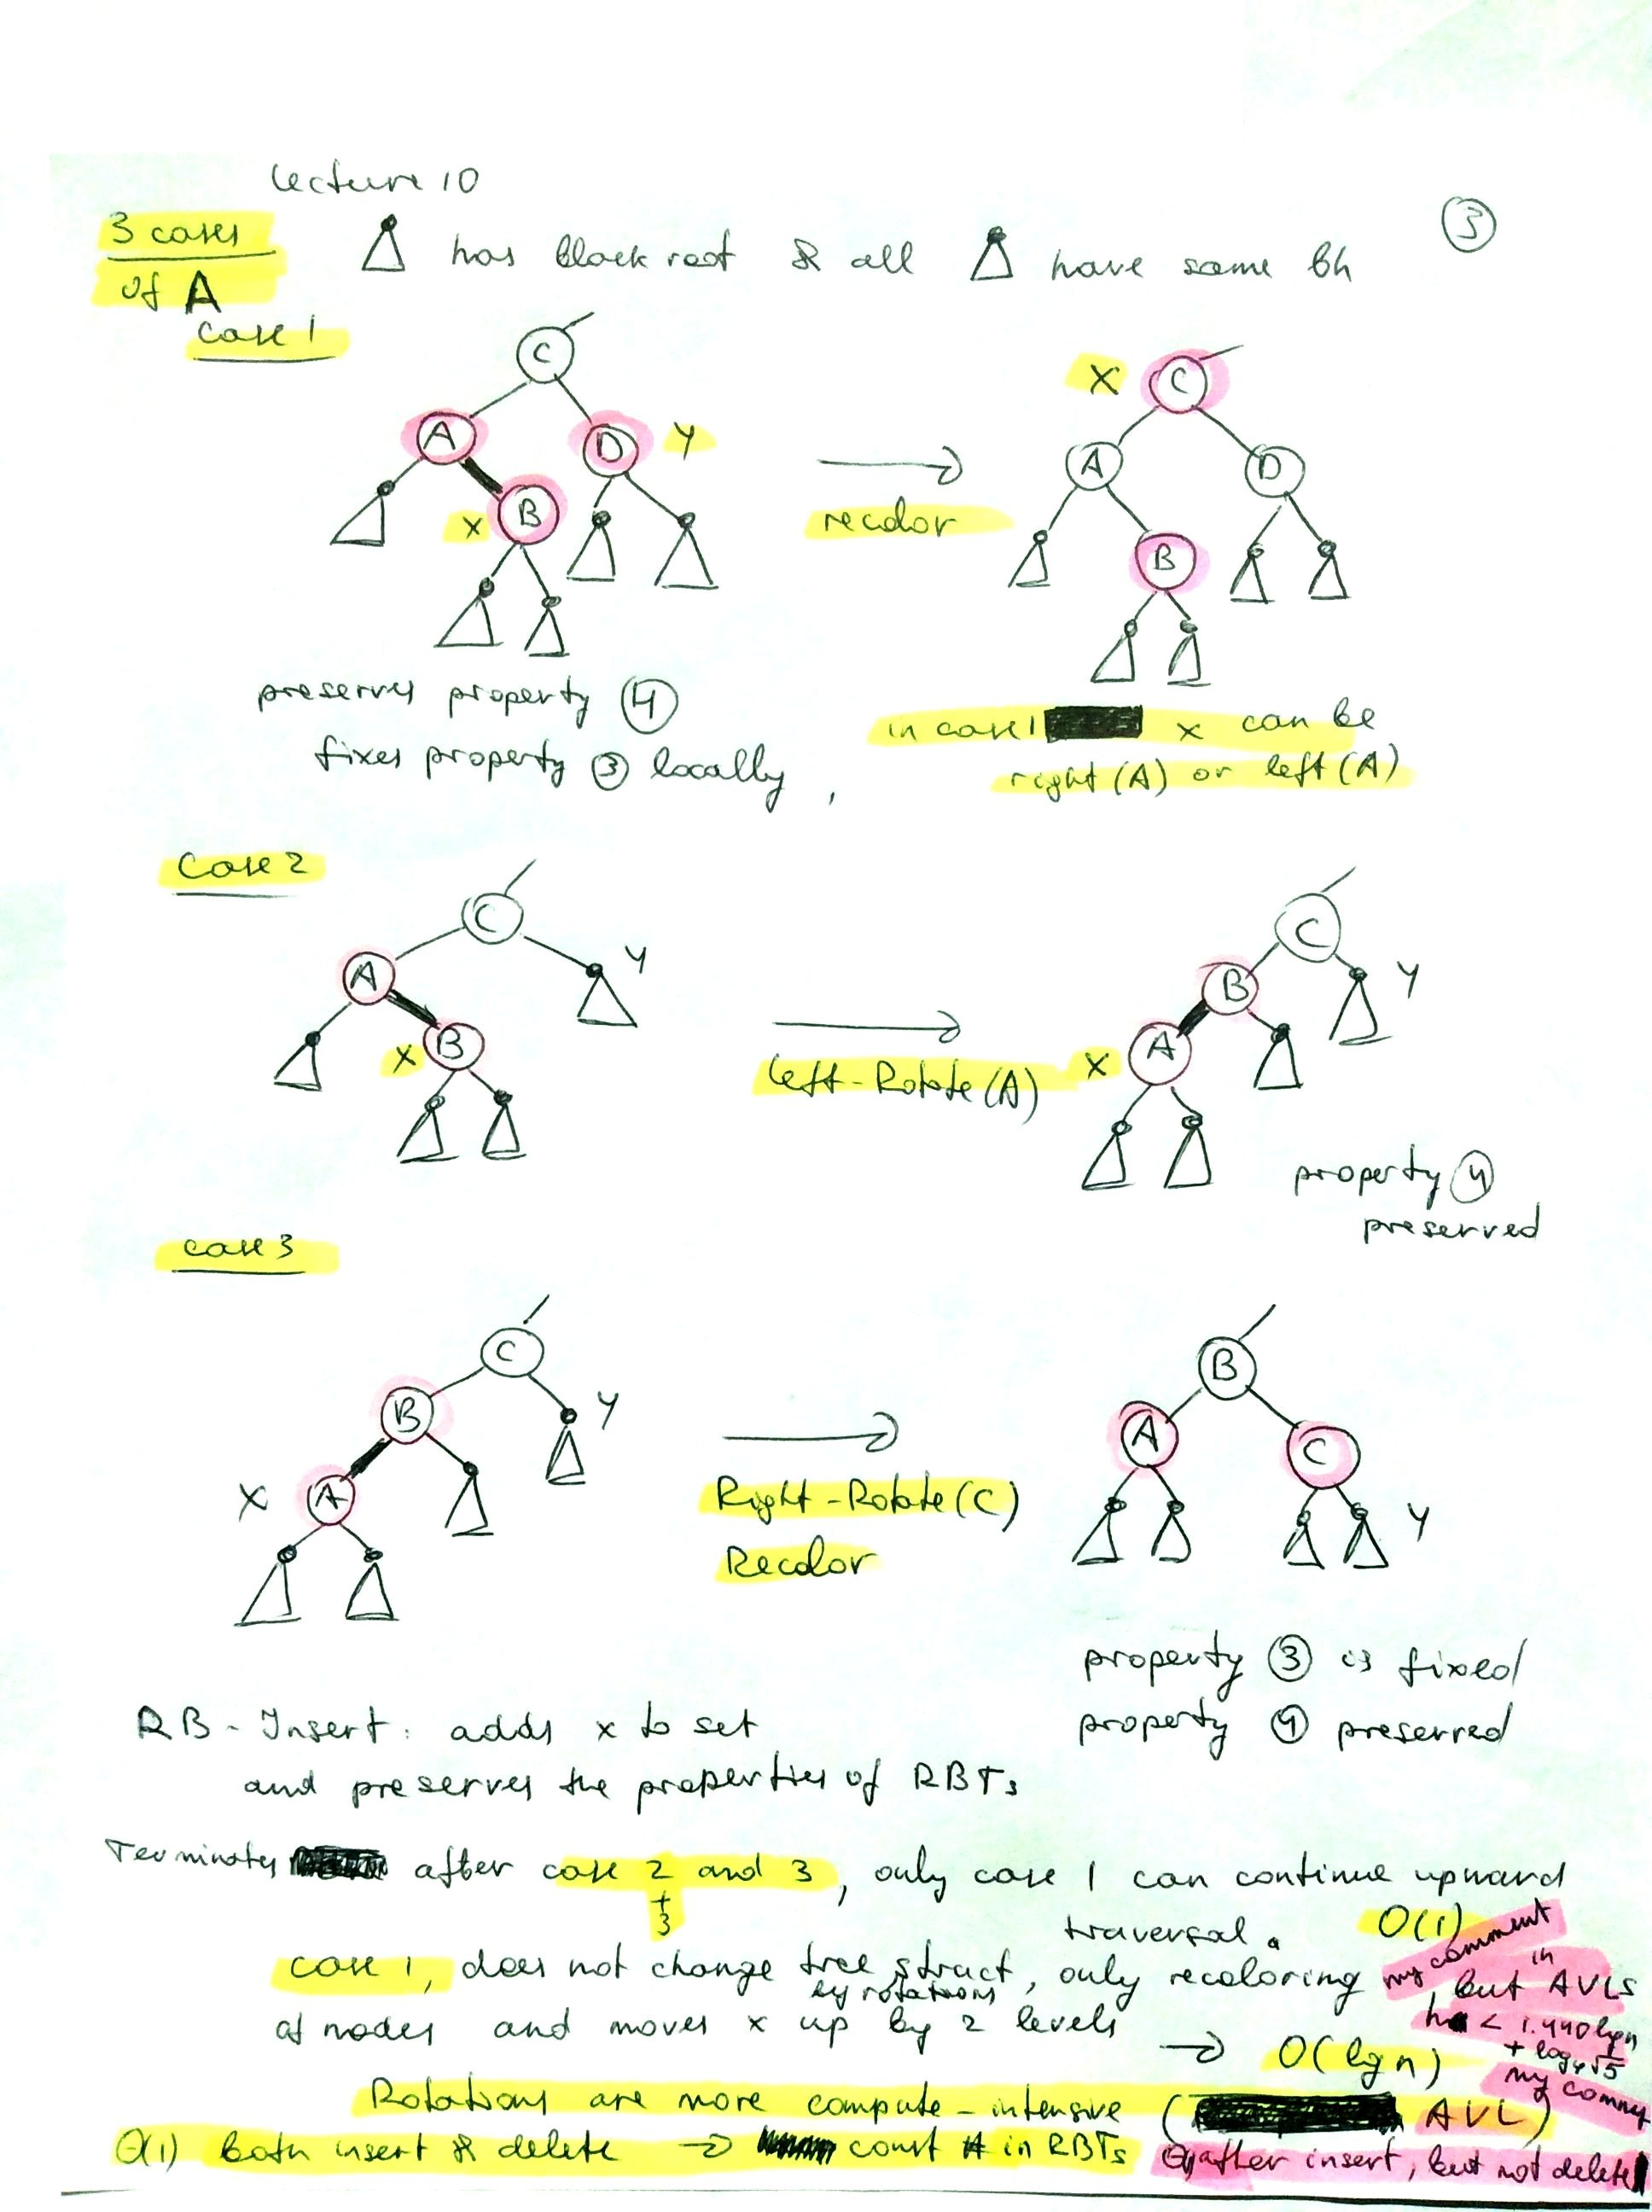 Lecture 10
3 cases
of A
has black root & all have same bh
3
case 1
C
A
D
Y
B
X
recolor
X
C
A
D
B
preserves property 4
fixes property 3 locally,
in case 1 x can be
right (A) or left (A)
Case 2
C
A
Y
B
X
Left-Rotate (A)
C
B
Y
A
X
property 4
preserved
case 3
C
B
Y
A
X
Right-Rotate (C)
Recolor
B
A
C
Y
property 3 is fixed
property 4 preserved
RB-Insert: adds x to set
and preserves the properties of RBTs
Terminates after case 2 and 3, only case 1 can continue upward
+
3
traversal.
O(1)
case 1, does not change tree struct, only recoloring
by rotations
of nodes and moves x up by 2 levels
→ O(lg n)
my comment
in
but AVLs
h < 1.440 lg n
+ log √5
my commnt
Rotations are more compute-intensive ( AVL)
O(1) both insert & delete → const # in RBTs
after insert, but not delete